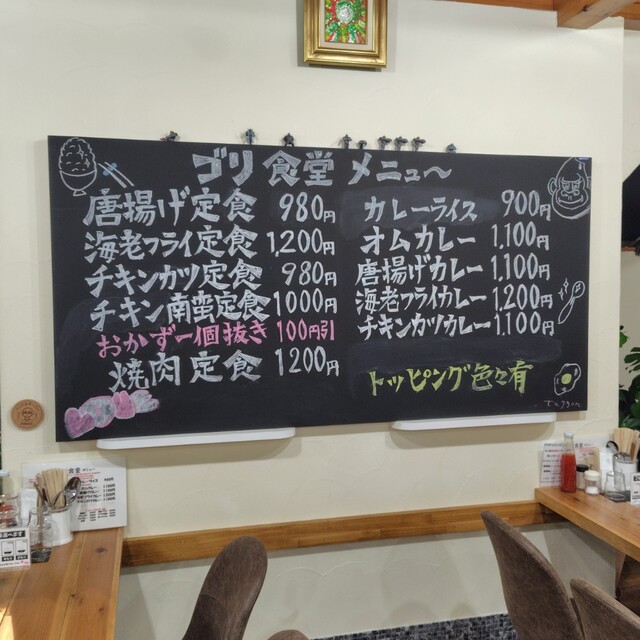 ゴリ食堂 メニュ〜
唐揚げ定食 980円
海老フライ定食 1,200円
チキンカツ定食 980円
チキン南蛮定食 1000円
おかず一個抜き 100円引
焼肉定食 1200円
カレーライス 900円
オムカレー 1,100円
唐揚げカレー 1,100円
海老フライカレー 1,200円
チキンカツカレー 1,100円
トッピング色々有